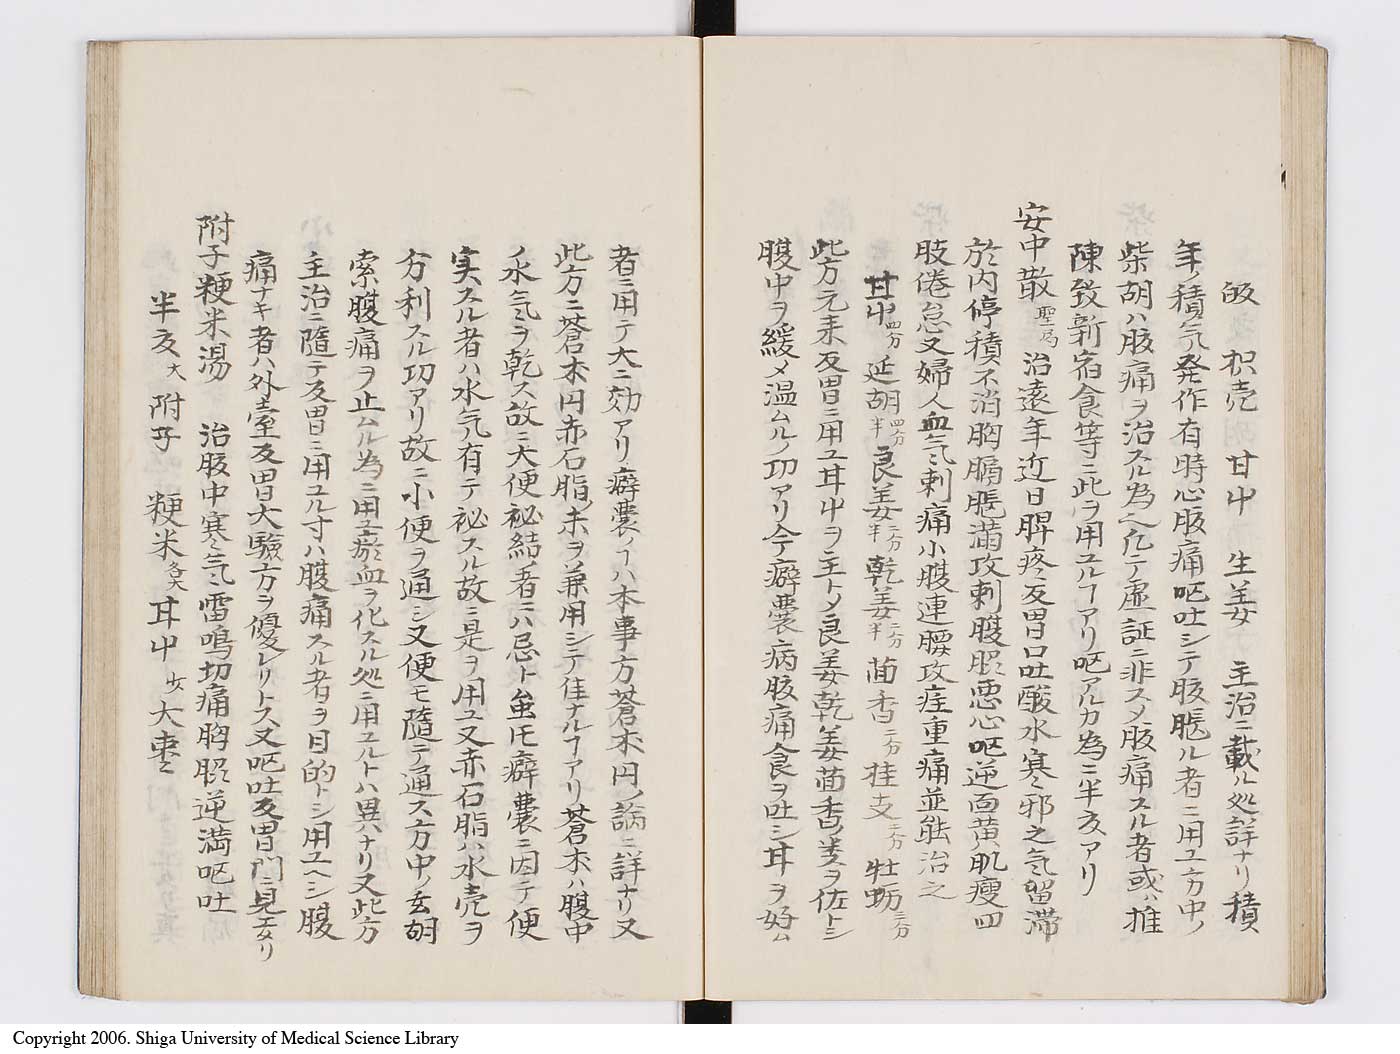 皈 枳壳 甘屮 生姜 主治ニ載ル処詳ナリ積
年ノ積気発作有時心腹痛呕吐シテ腹脹ル者ニ用ユ方中ノ
柴胡ハ腹痛ヲ治スル為ヘ凢テ虚証ニ非スノ腹痛スル者或ハ推
陳致新宿食等ニ此ヲ用ユルヿアリ呕アルカ為ニ半夏アリ
安中散 聖局 治遠年近日脾疼反胃口吐酸水寒邪之気留滞
於内停積不消胸膈脹満攻刺腹脹悪心呕逆面黄肌瘦四
肢倦怠又婦人血気刺痛小腹連腰攻疰重痛並能治之
甘屮 四分 延胡 四分半 良姜 二分半 乾姜 二分半 茴香 二分 桂支 三分 牡蛎 三分
此方元来反胃ニ用ユ甘屮ヲ主トメ良姜乾姜茴香ノ类ヲ佐トシ
腹中ヲ緩メ温ムルノ功アリ今癖嚢病腹痛食ヲ吐シ甘ヲ好ム
者ニ用テ大ニ効アリ癖嚢ノヿハ本事方蒼朮円ノ論ニ詳ナリ又
此方ニ蒼朮円赤石脂ノ末ヲ兼用シテ佳ナルヿアリ蒼朮ハ腹中
ノ水気ヲ乾ス故ニ大便秘結ノ者ニハ忌ト虽𪜈癖嚢ニ因テ便
実スル者ハ水気有テ秘スル故ニ是ヲ用ユ又赤石脂ハ水壳ヲ
分利スル功アリ故ニ小便ヲ通シ又便モ随テ通ス方中ノ玄胡
索腹痛ヲ止ムル為ニ用ユ瘀血ヲ化スル処ニ用ユルトハ異ハナリ又此方
主治ニ随テ反胃ニ用ユル寸ハ腹痛スル者ヲ目的トシ用ユヘシ腹
痛ナキ者ハ外臺反胃大驗方ヲ優レリトス又呕吐反胃門ニ見エタリ
附子粳米湯 治腹中寒気雷鳴切痛胸脇逆満呕吐
半夏 大 附子 粳米 各大 甘屮 少 大棗